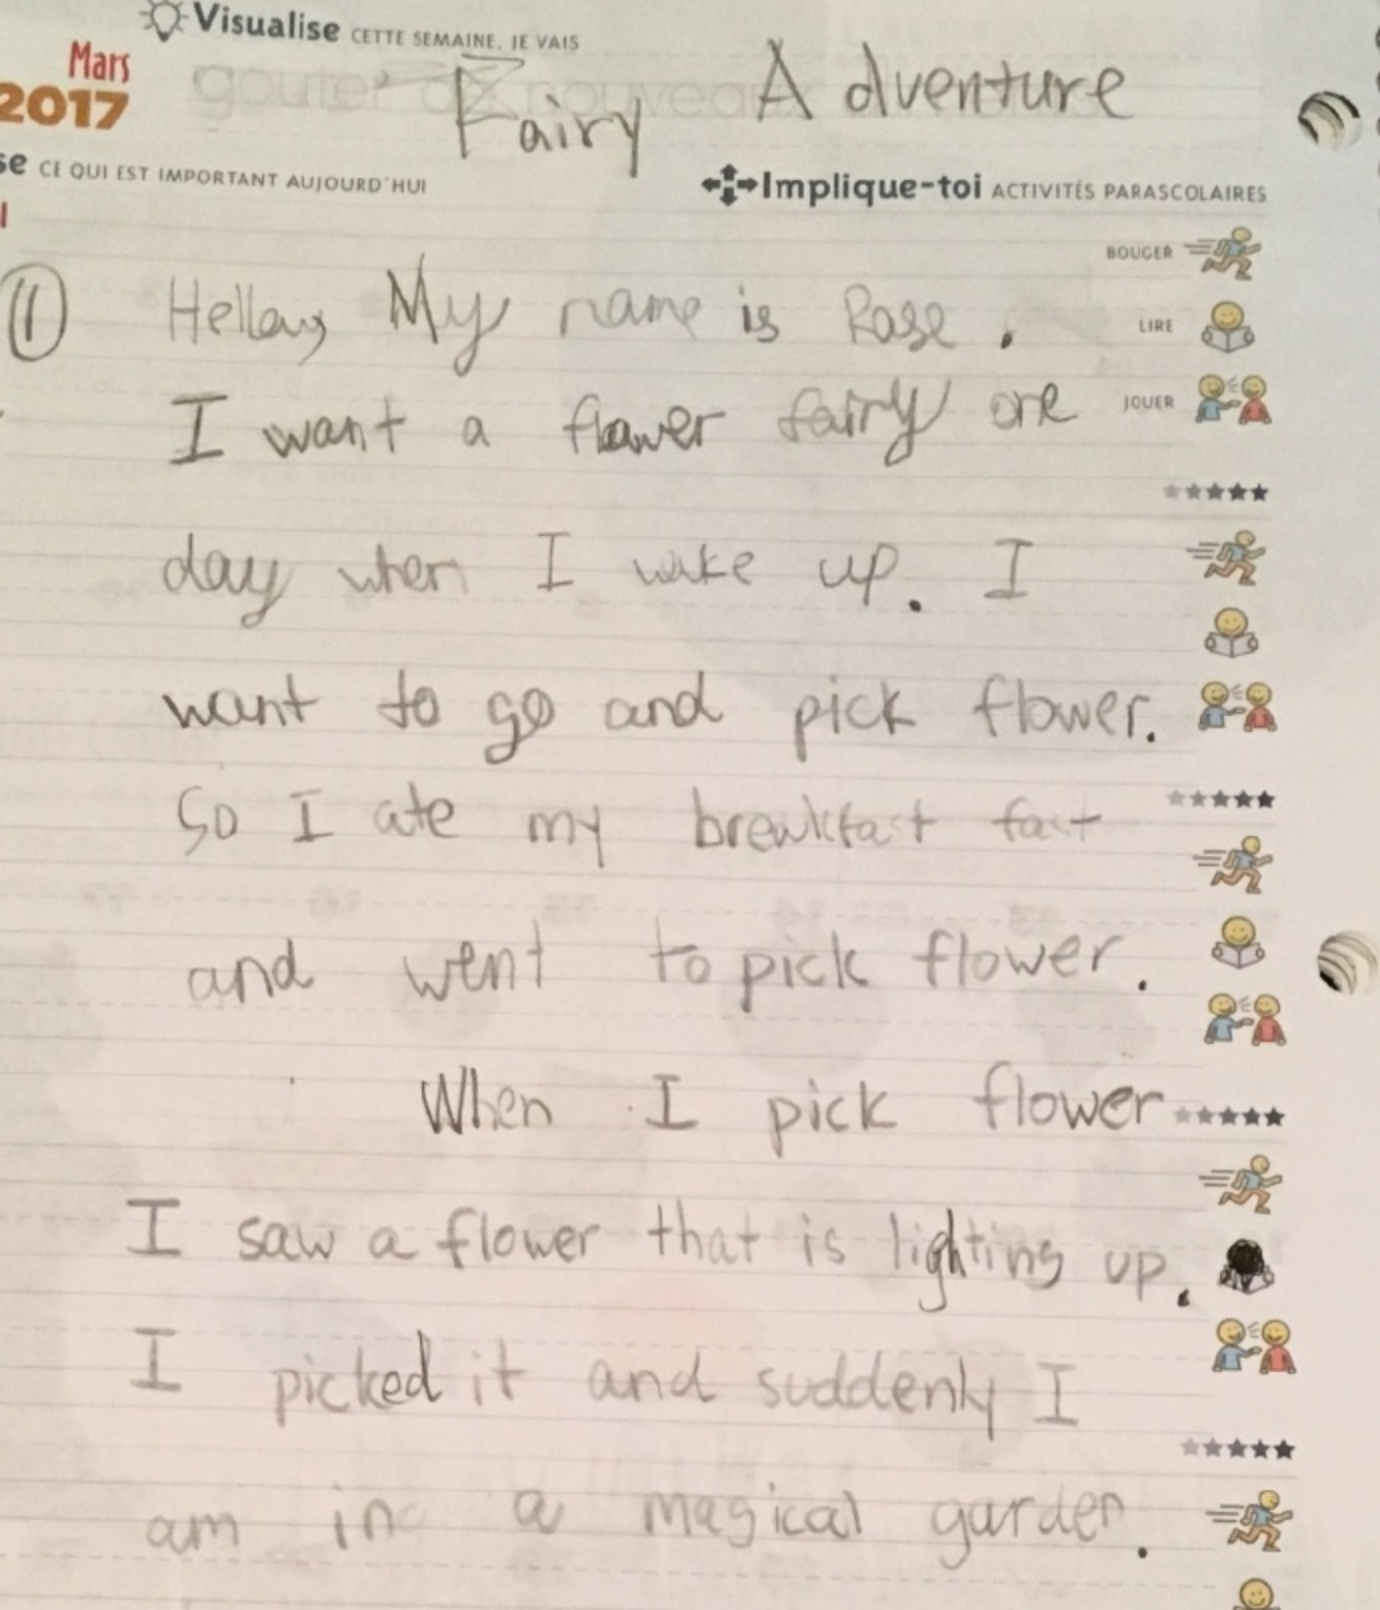 Visualise CETTE SEMAINE, JE VAIS
Mars
2017
gouter de nouveau
Fairy Adventure
se CE QUI EST IMPORTANT AUJOURD'HUI
Implique-toi ACTIVITÉS PARASCOLAIRES
BOUGER
① Hellow My name is Rose.
LIRE
I want a flower fairy one
JOUER
day when I wake up. I
want to go and pick flower.
So I ate my breakfast fast
and went to pick flower.
When I pick flower
I saw a flower that is lighting up.
I picked it and suddenly I
am in a magical garden.